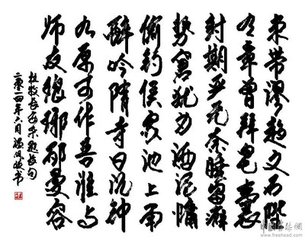 束带谬趋文石陛
有章曾拜皂囊
封期严无奈睡留癖
势窘犹为酒泥慵
偷钓侯家池上雨
醉吟隋寺日沉钟
九原可作吾谁与
师友琅琊邴曼容
杜牧长安杂题长句
二〇一四年六月